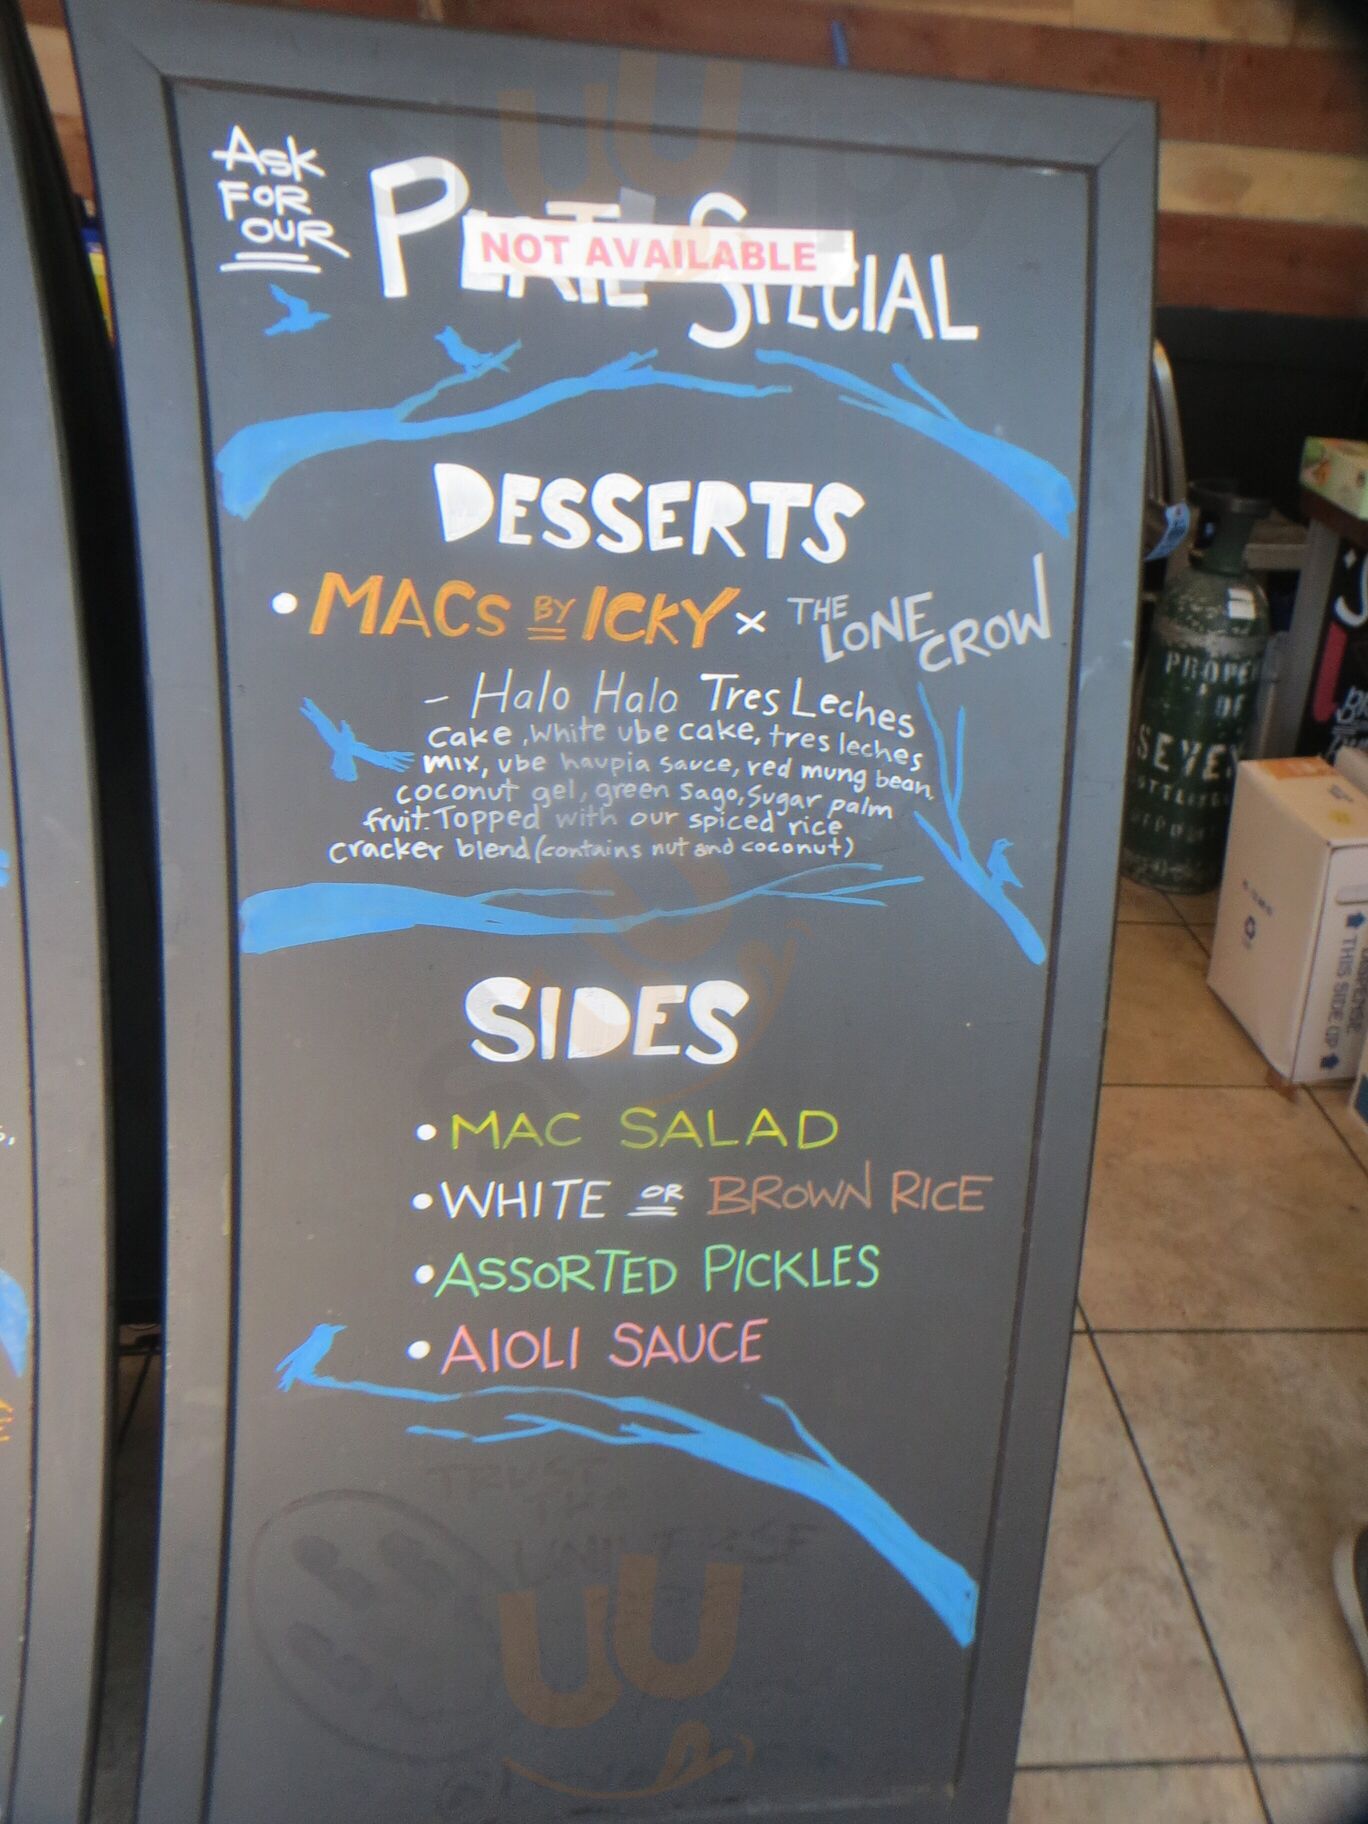 ASK
FOR
OUR
PLATE SPECIAL
NOT AVAILABLE
DESSERTS
• MACS BY ICKY x THE LONE CROW
- Halo Halo Tres Leches
cake, white ube cake, tres leches
mix, ube haupia sauce, red mung bean,
coconut gel, green sago, sugar palm
fruit. Topped with our spiced rice
cracker blend (contains nut and coconut)
SIDES
• MAC SALAD
• WHITE OR BROWN RICE
• ASSORTED PICKLES
• AIOLI SAUCE
TRUST
THE
THIS SIDE UP